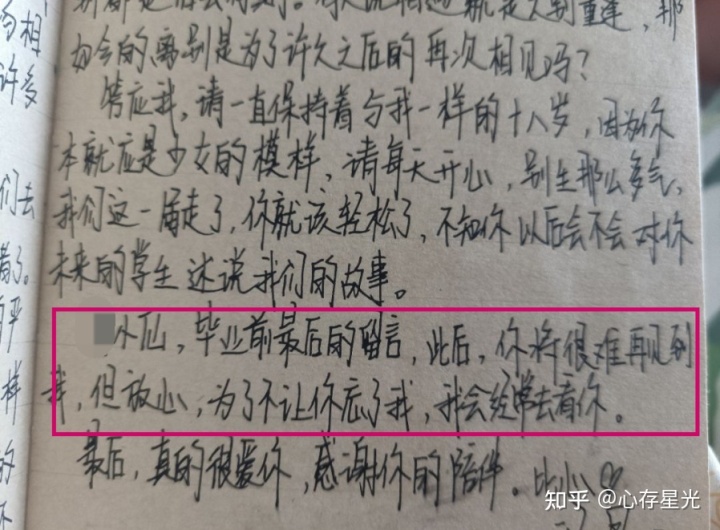 勿会的离别是为了许久之后的再次相见吗？
答应我，请一直保持着与我一样的十八岁，因为你
本就应是少女的模样，请每天开心，别生那么多气，
我们这一届走了，你就该轻松了，不知你以后会不会对你
未来的学生述说我们的故事。
小仙，毕业前最后的留言，此后，你将很难再见到
我，但放心，为了不让你忘了我，我会经常去看你。
最后，真的很爱你，感谢你的陪伴。比心
许多
们去
着了。
样
的
知乎 @心存星光